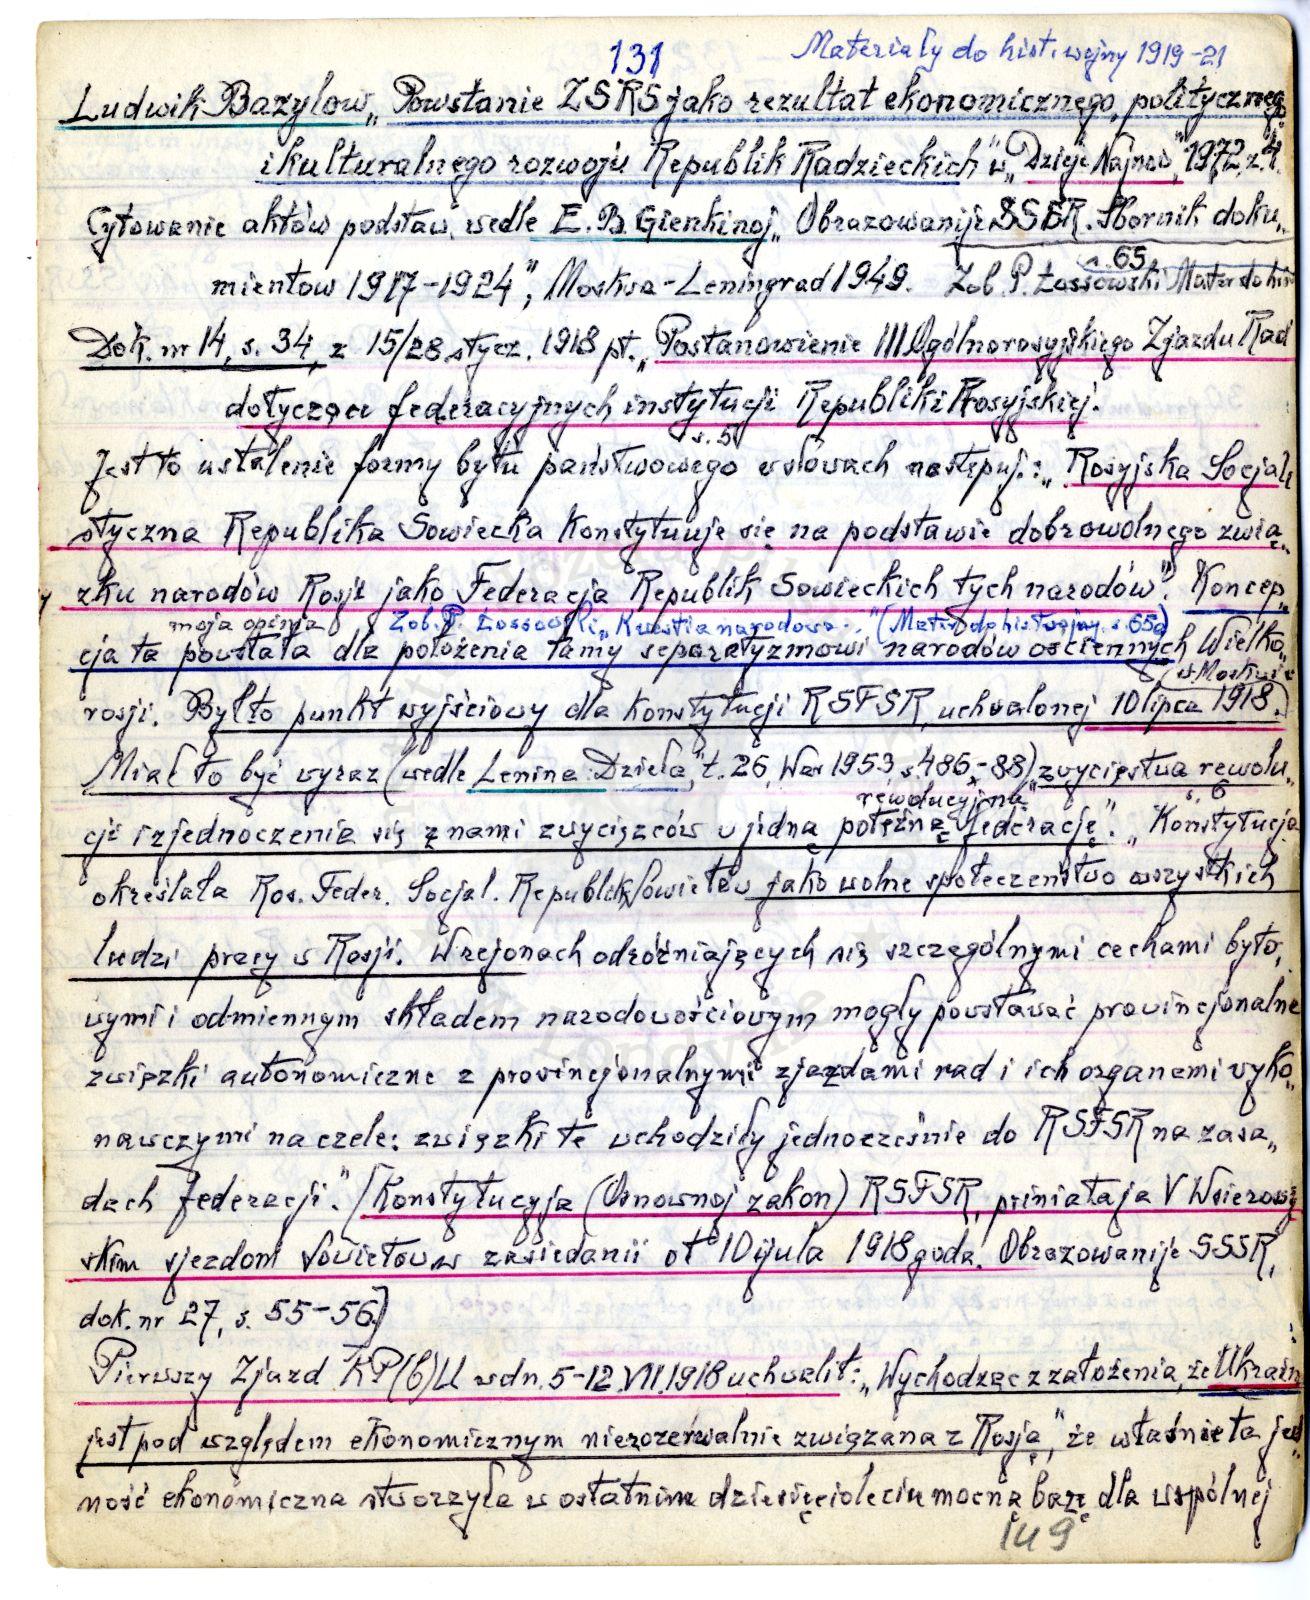 131
Materiały do hist. wojny 1919-21
Ludwik Bazylow „Powstanie ZSRS jako rezultat ekonomicznego, politycznego
i kulturalnego rozwoju Republik Radzieckich" w „Dzieje Najnow" 1972, z. 4.
Cytowanie aktów podstaw. wedle E. B. Gienkinoj „Obrazowanije SSSR. Sbornik doku„
mientow 1917-1924", Moskwa-Leningrad 1949. Zob. P. Łossowski Mater do hist
s. 65
Dok. nr 14, s. 34, z 15/28 stycz. 1918 pt. „Postanowienie III Ogólnorosyjskiego Zjazdu Rad
dotyczące federacyjnych instytucji Republiki Rosyjskiej.
s. 5
Jest to ustalenie formy bytu państwowego w słowach następuj.: „Rosyjska Socjali
styczna Republika Sowiecka Konstytuuje się na podstawie dobrowolnego zwią„
zku narodów Rosji jako Federacja Republik Sowieckich tych narodów". Koncep„
moja opinja Zob. P. Łossowski „Kwestia narodowa..." (Mater do hist wojny s. 65a)
cja ta powstała dla położenia tamy separatyzmowi narodów ościennych Wielko„
(w Moskwie
rosji. Był to punkt wyjściowy dla Konstytucji RSFSR, uchwalonej 10 lipca 1918.)
Miał to być wyraz (wedle Lenina: Dzieła", t. 26, War 1953 s. 486-88) „zwycięstwa rewolu„
rewolucyjną s. 6
cji i zjednoczenia się z nami zwycięzców w jedną potężną federację". „Konstytucja
określała Ros. Feder. Socjal. Republikę Sowietów jako wolne społeczeństwo wszystkich
ludzi pracy w Rosji. W rejonach odróżniających się szczególnymi cechami byto„
wymi i odmiennym składem narodowościowym mogły powstawać prowincjonalne
związki autonomiczne z prowincjonalnymi zjazdami rad i ich organami wyko„
nawczymi na czele: związki te wchodziły jednocześnie do RSFSR na zasa„
dach federacji". [Konstytucyja (Osnownoj zakon) RSFSR, priniataja V Wsierossij
skim sjezdom Sowietow w zasiedanii ot 10 ijula 1918 goda. Obrazowanije SSSR,
dok. nr 27, s. 55-56]
Pierwszy Zjazd KP(b)U w dn. 5-12.VII.1918 uchwalił: „Wychodząc z założenia, że Ukraina
jest pod względem ekonomicznym nierozerwalnie związana z Rosją", że właśnie ta jed„
ność ekonomiczna stworzyła w ostatnim dziesięcioleciu mocną bazę dla wspólnej
149